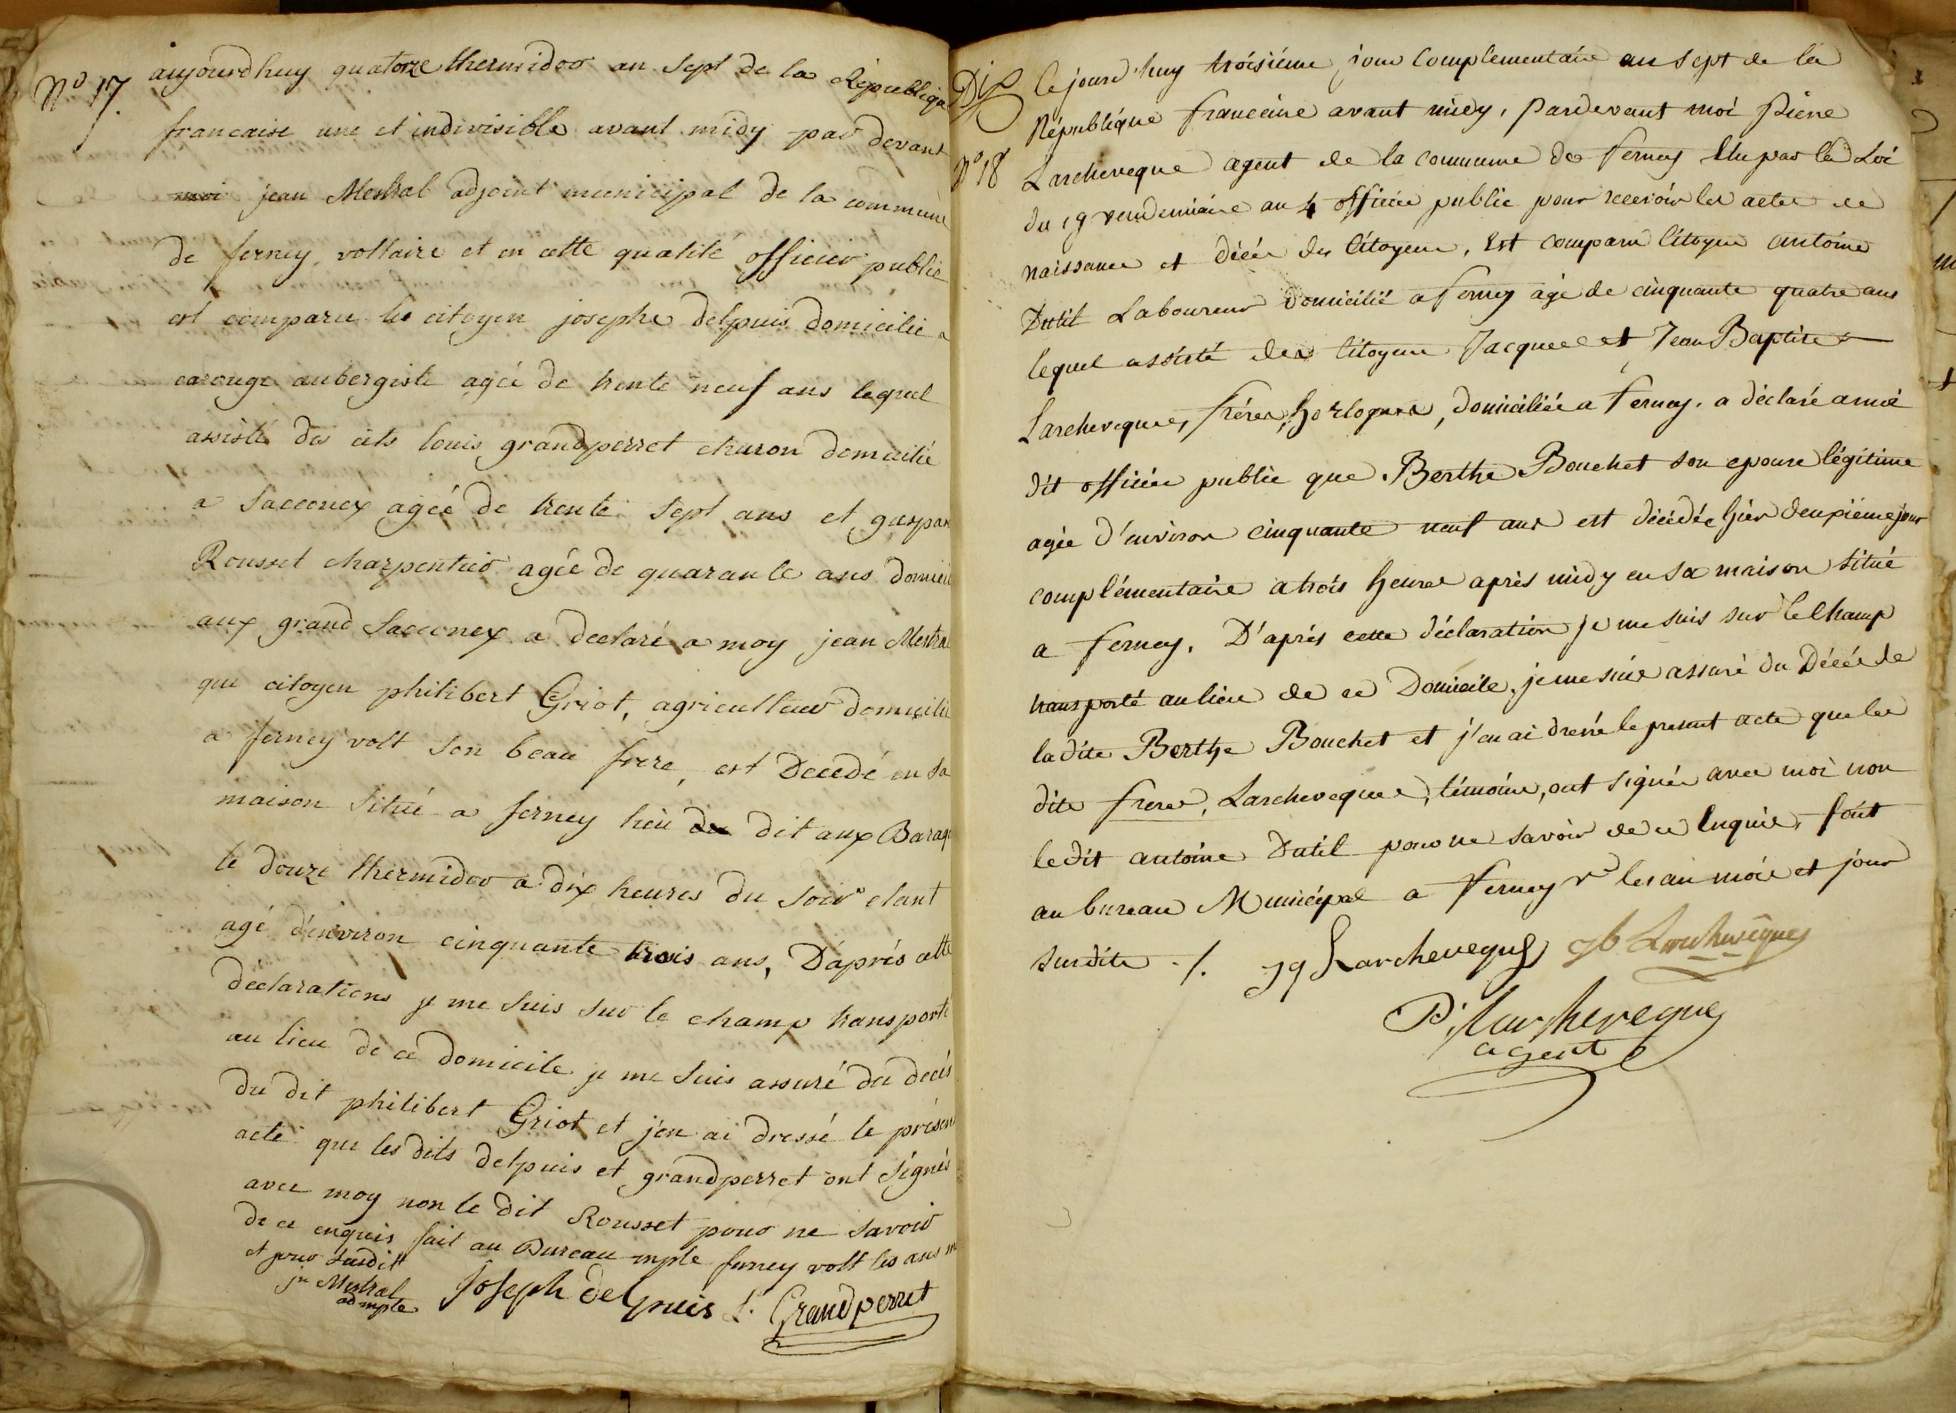 N° 17. aujourdhuy quatorze thermidor an sept de la Republiqu
francaise une et indivisible avant midy par devant
moi jean Mestral adjoint municipal de la commune
de ferney voltaire et en cette qualité officier public
est comparu le citoyen josephe delpuis domicilié a
carouge aubergiste agée de trente neuf ans lequel
assisté des cits louis grandperret charon domicilié
a Sacconex agée de trente sept ans et gaspar
Rousset charpentier agée de quarante ans domicil
aux grand Sacconex a declaré a moy jean Mestra
que citoyen philibert Griot, agriculteur domicilié
a ferney volt son beau frere, est Decedé en sa
maison situé a ferney lieu dit aux Baraq
le douze thermidor a dix heures du soir etant
agé d'environ cinquante trois ans, D'aprés cette
déclarations je me suis sur le champ transporté
au lieu de ce domicile je me suis assuré du decés
du dit philibert Griot et j'en ai dressé le présen
acte que les dits delpuis et grandperret ont signés
avec moy non le dit Rousset pour ne savoir
de ce enquis fait au Bureau mple ferney volt les ans m
et jour susdit
jn Mestral
ad mple
Joseph delpuis L. Grandperret
Dix
N° 18
le jourd'huy troisiéme jour complementaire an sept de la
République franceine avant midy, Pardevant moi Pierre
Larcheveque agent de la commune de ferney Elu par la Loi
du 19 vendemiaire an 4 officier public pour recevoir les actes de
naissance et décés des Citoyens, Est comparu Citoyen antoine
Dutil Laboureur domicilié a ferney agé de cinquante quatre ans
lequel assisté des Citoyens Jacques et Jean Baptiste
Larcheveques, fréres, horlogers, domiciliés a ferney, a déclaré a moi
dit officier public que Berthe Bouchet son epouse légitime
agée d'environ cinquante neuf ans est décédée hier deuxiéme jour
complémentaire a trois heures aprés midy en sa maison situé
a ferney. D'aprés cette déclaration je me suis sur le Champ
transporté au lieu de ce Domicile, je me suis assuré du Décés de
la dite Berthe Bouchet et j'en ai dressé le present acte que les
dits freres, Larcheveques, témoins, ont signés avec moi non
le dit antoine Dutil pour ne savoir de ce Enquis, fait
au bureau Municipal a ferney vre les an mois et jour
susdits ./. Jq Larcheveque Jb Larchevêque
P. Larcheveque
agent